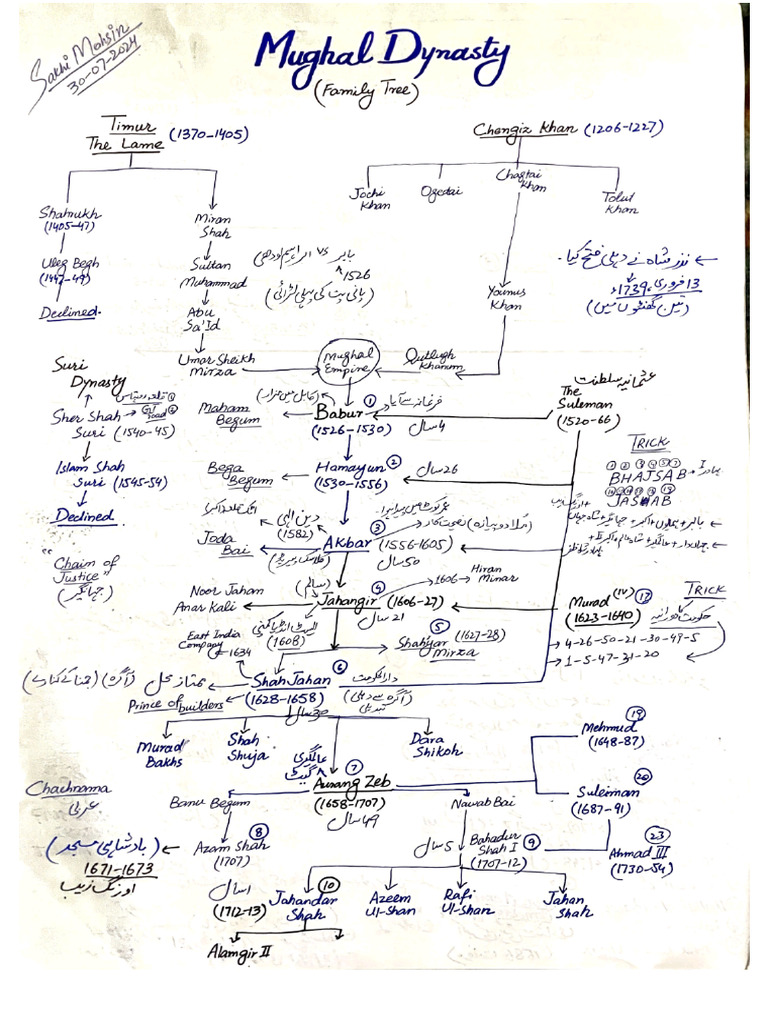 Sakhi Mohsin
30-07-2024
Mughal Dynasty
(Family Tree)
Timur
The Lame
(1370-1405)
Chengiz Khan (1206-1227)
Shahrukh
(1405-47)
Miran
Shah
Jochi
Khan
Ogedai
Chagtai
Khan
Tolui
Khan
Uleg Begh
(1447-49)
Sultan
Muhammad
بابر vs ابراہیم لودھی
1526
(پانی پت کی پہلی لڑائی)
Younus
Khan
نادر شاہ نے دہلی فتح کیا۔
13 فروری 1739ء
(تین گھنٹوں میں)
Declined.
Abu
Sa'Id
Umar Sheikh
Mirza
Mughal
Empire
Qutlugh
Khanum
Suri
Dynasty
Sher Shah
Suri (1540-45)
GT
road
Maham
Begum
(کابل میں مزار)
Babur 1
(1526-1530)
فرغانہ سے آیا
4 سال
عثمانیہ سلطنت
The
Suleman
(1520-66)
Islam Shah
Suri (1545-54)
Declined
Bega
Begum
Hamayun 2
(1530-1556)
26 سال
TRICK
1 2 3 4 5 7
BHAJSAB
JASNAB
"Chaim of
Justice"
(جہانگیر)
Joda
Bai
دین الہی
(1582)
Akbar 3 (1556-1605)
50 سال
Noor Jahan
Anar Kali
(سالم)
Jahangir 4 (1606-27)
21 سال
1606 → Hiran
Minar
Murad (IV) 17
(1623-1640)
TRICK
4-26-50-21-30-49-5
1-5-47-31-20
East India
Company
1634
(1608)
5 (1627-28)
Shahryar
Mirza
ممتاز محل (آگرہ) (جمنا کے کنارے)
Prince of builders
Shah Jahan 6
(1628-1658)
30 سال
دارالحکومت
(آگرہ سے دہلی)
Murad
Bakhs
Shah
Shuja
Dara
Shikoh
Mehmud 19
(1648-87)
Chachnama
عربی
عالمگیری
گیٹ
7
Aurang Zeb
(1658-1707)
49 سال
Banu Begum
Nawab Bai
Suleiman 20
(1687-91)
(بادشاہی مسجد)
1671-1673
اورنگ زیب
8
Azam Shah
(1707)
1 سال
5 سال
Bahadur
Shah I 9
(1707-12)
23
Ahmad III
(1730-54)
(1712-13)
Jahandar
Shah
10
Azeem
Ul-Shan
Rafi
Ul-Shan
Jahan
Shah
Alamgir II